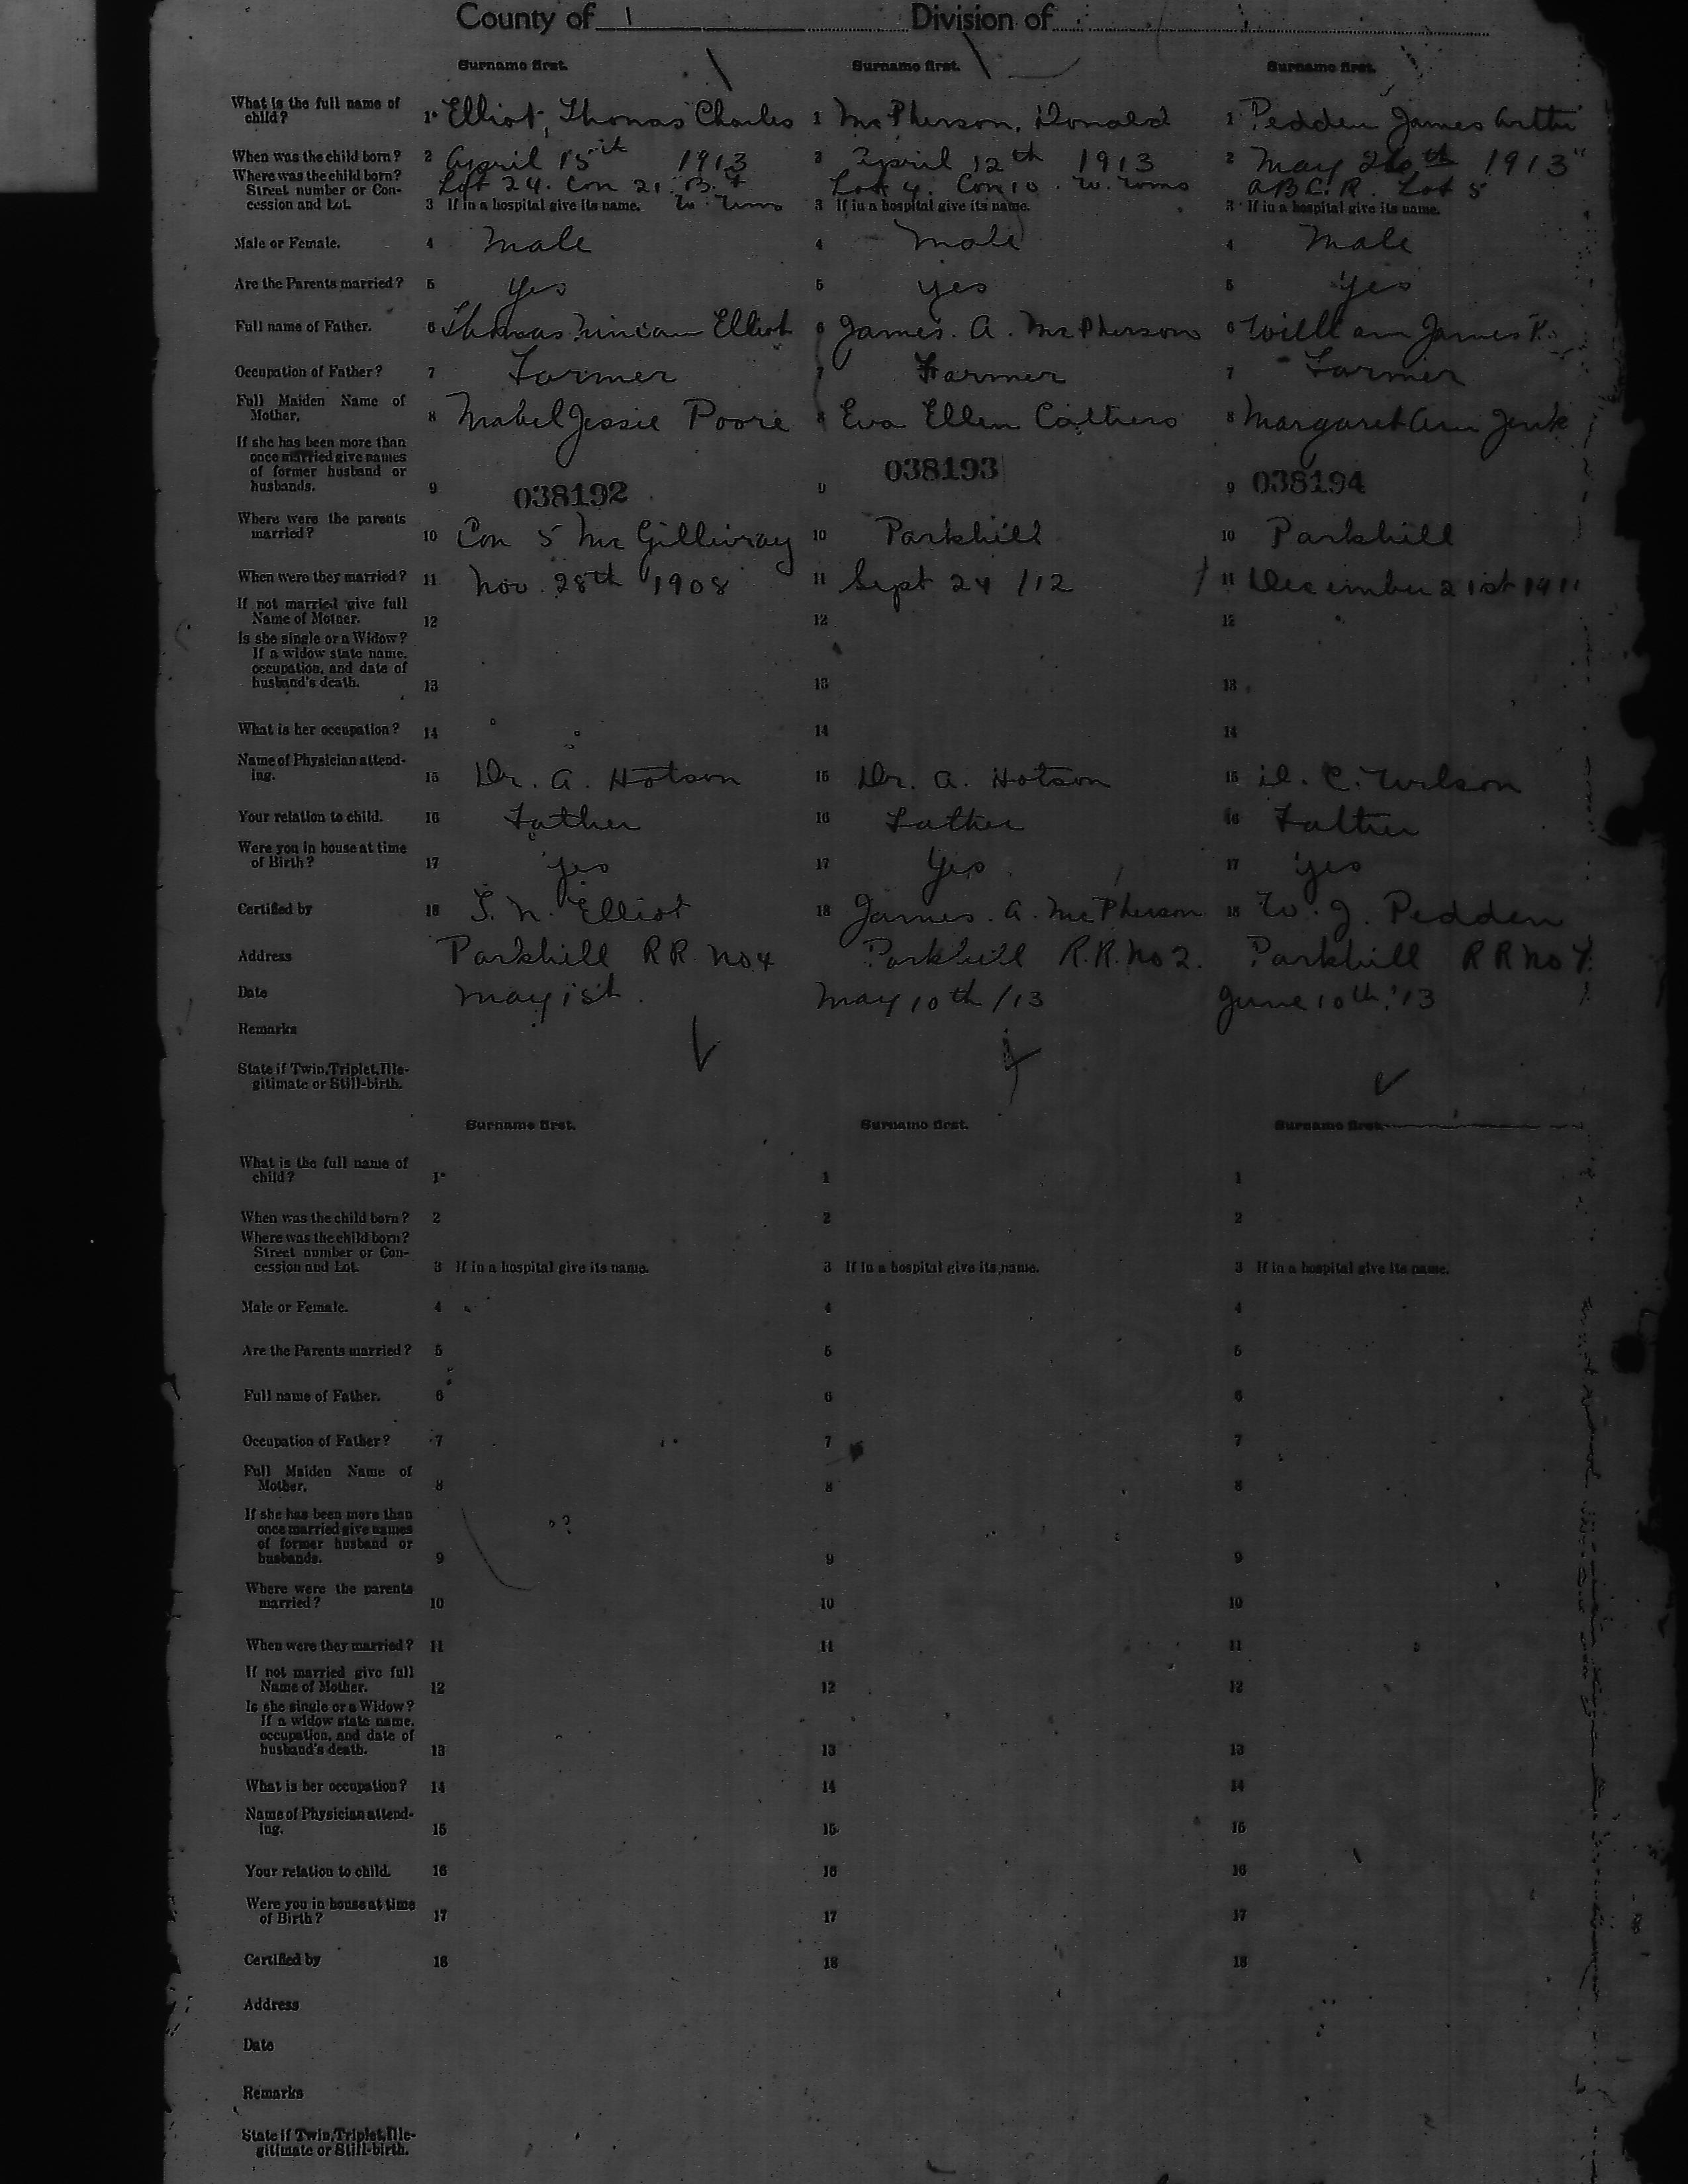 County of Division of
Surname first. Surname first. Surname first.
What is the full name of
child? 1 Elliot, Thomas Charles 1 McPherson, Donald 1 Pedden James Arthu
When was the child born? 2 April 15th 1913 2 April 12th 1913 2 May 26th 1913
Where was the child born? Lot 24. Con 21. Lot 4. Con 10. W. Wms A B C. R. Lot 5
Street number or Con-
cession and Lot. 3 If in a hospital give its name. W. Wms 3 If in a hospital give its name. 3 If in a hospital give its name.
Male or Female. 4 Male 4 Male 4 Male
Are the Parents married? 5 Yes 5 Yes 5 Yes
Full name of Father. 6 Thomas Ninian Elliot 6 James. A. McPherson 6 William James P.
Occupation of Father? 7 Farmer 7 Farmer 7 Farmer
Full Maiden Name of
Mother. 8 Mabel Jessie Poore 8 Eva Ellen 8 Margaret Ann Jenk
If she has been more than
once married give names
of former husband or
husbands. 9 038192 9 038193 9 038194
Where were the parents
married? 10 Con 5 McGillivray 10 Parkhill 10 Parkhill
When were they married? 11 Nov. 28th 1908 11 Sept 24 /12 11 December 21st 1911
If not married give full
Name of Mother. 12 12 12
Is she single or a Widow?
If a widow state name,
occupation, and date of
husband's death. 13 13 13
What is her occupation? 14 14 14
Name of Physician attend-
ing. 15 Dr. A. Hotson 15 Dr. A. Hotson 15 D. C. Wilson
Your relation to child. 16 Father 16 Father 16 Father
Were you in house at time
of Birth? 17 Yes 17 Yes 17 Yes
Certified by 18 T. N. Elliot 18 James. A. McPherson 18 W. J. Pedden
Address Parkhill R R. No 4 Parkhill R.R. No 2. Parkhill R R No 7.
Date May 1st. May 10th /13 June 10th '13
Remarks
State if Twin, Triplet, Ille-
gitimate or Still-birth.
Surname first. Surname first. Surname first.
What is the full name of
child? 1 1 1
When was the child born? 2 2 2
Where was the child born?
Street number or Con-
cession and Lot. 3 If in a hospital give its name. 3 If in a hospital give its name. 3 If in a hospital give its name.
Male or Female. 4 4 4
Are the Parents married? 5 5 5
Full name of Father. 6 6 6
Occupation of Father? 7 7 7
Full Maiden Name of
Mother. 8 8 8
If she has been more than
once married give names
of former husband or
husbands. 9 9 9
Where were the parents
married? 10 10 10
When were they married? 11 11 11
If not married give full
Name of Mother. 12 12 12
Is she single or a Widow?
If a widow state name,
occupation, and date of
husband's death. 13 13 13
What is her occupation? 14 14 14
Name of Physician attend-
ing. 15 15 15
Your relation to child. 16 16 16
Were you in house at time
of Birth? 17 17 17
Certified by 18 18 18
Address
Date
Remarks
State if Twin, Triplet, Ille-
gitimate or Still-birth.